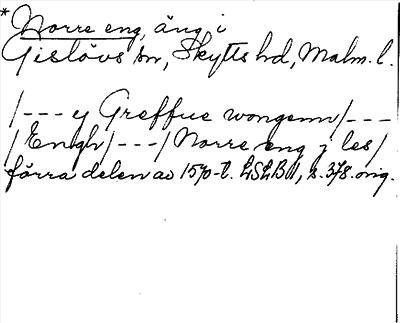 * Norre eng, äng i
Gislövs sn, Skytts hd, Malm. l.
/--- y Greffue wongenn/---
/Engh/---/Norre eng j les/
förra delen av 1570-t. LSLB 1, s. 378. orig.